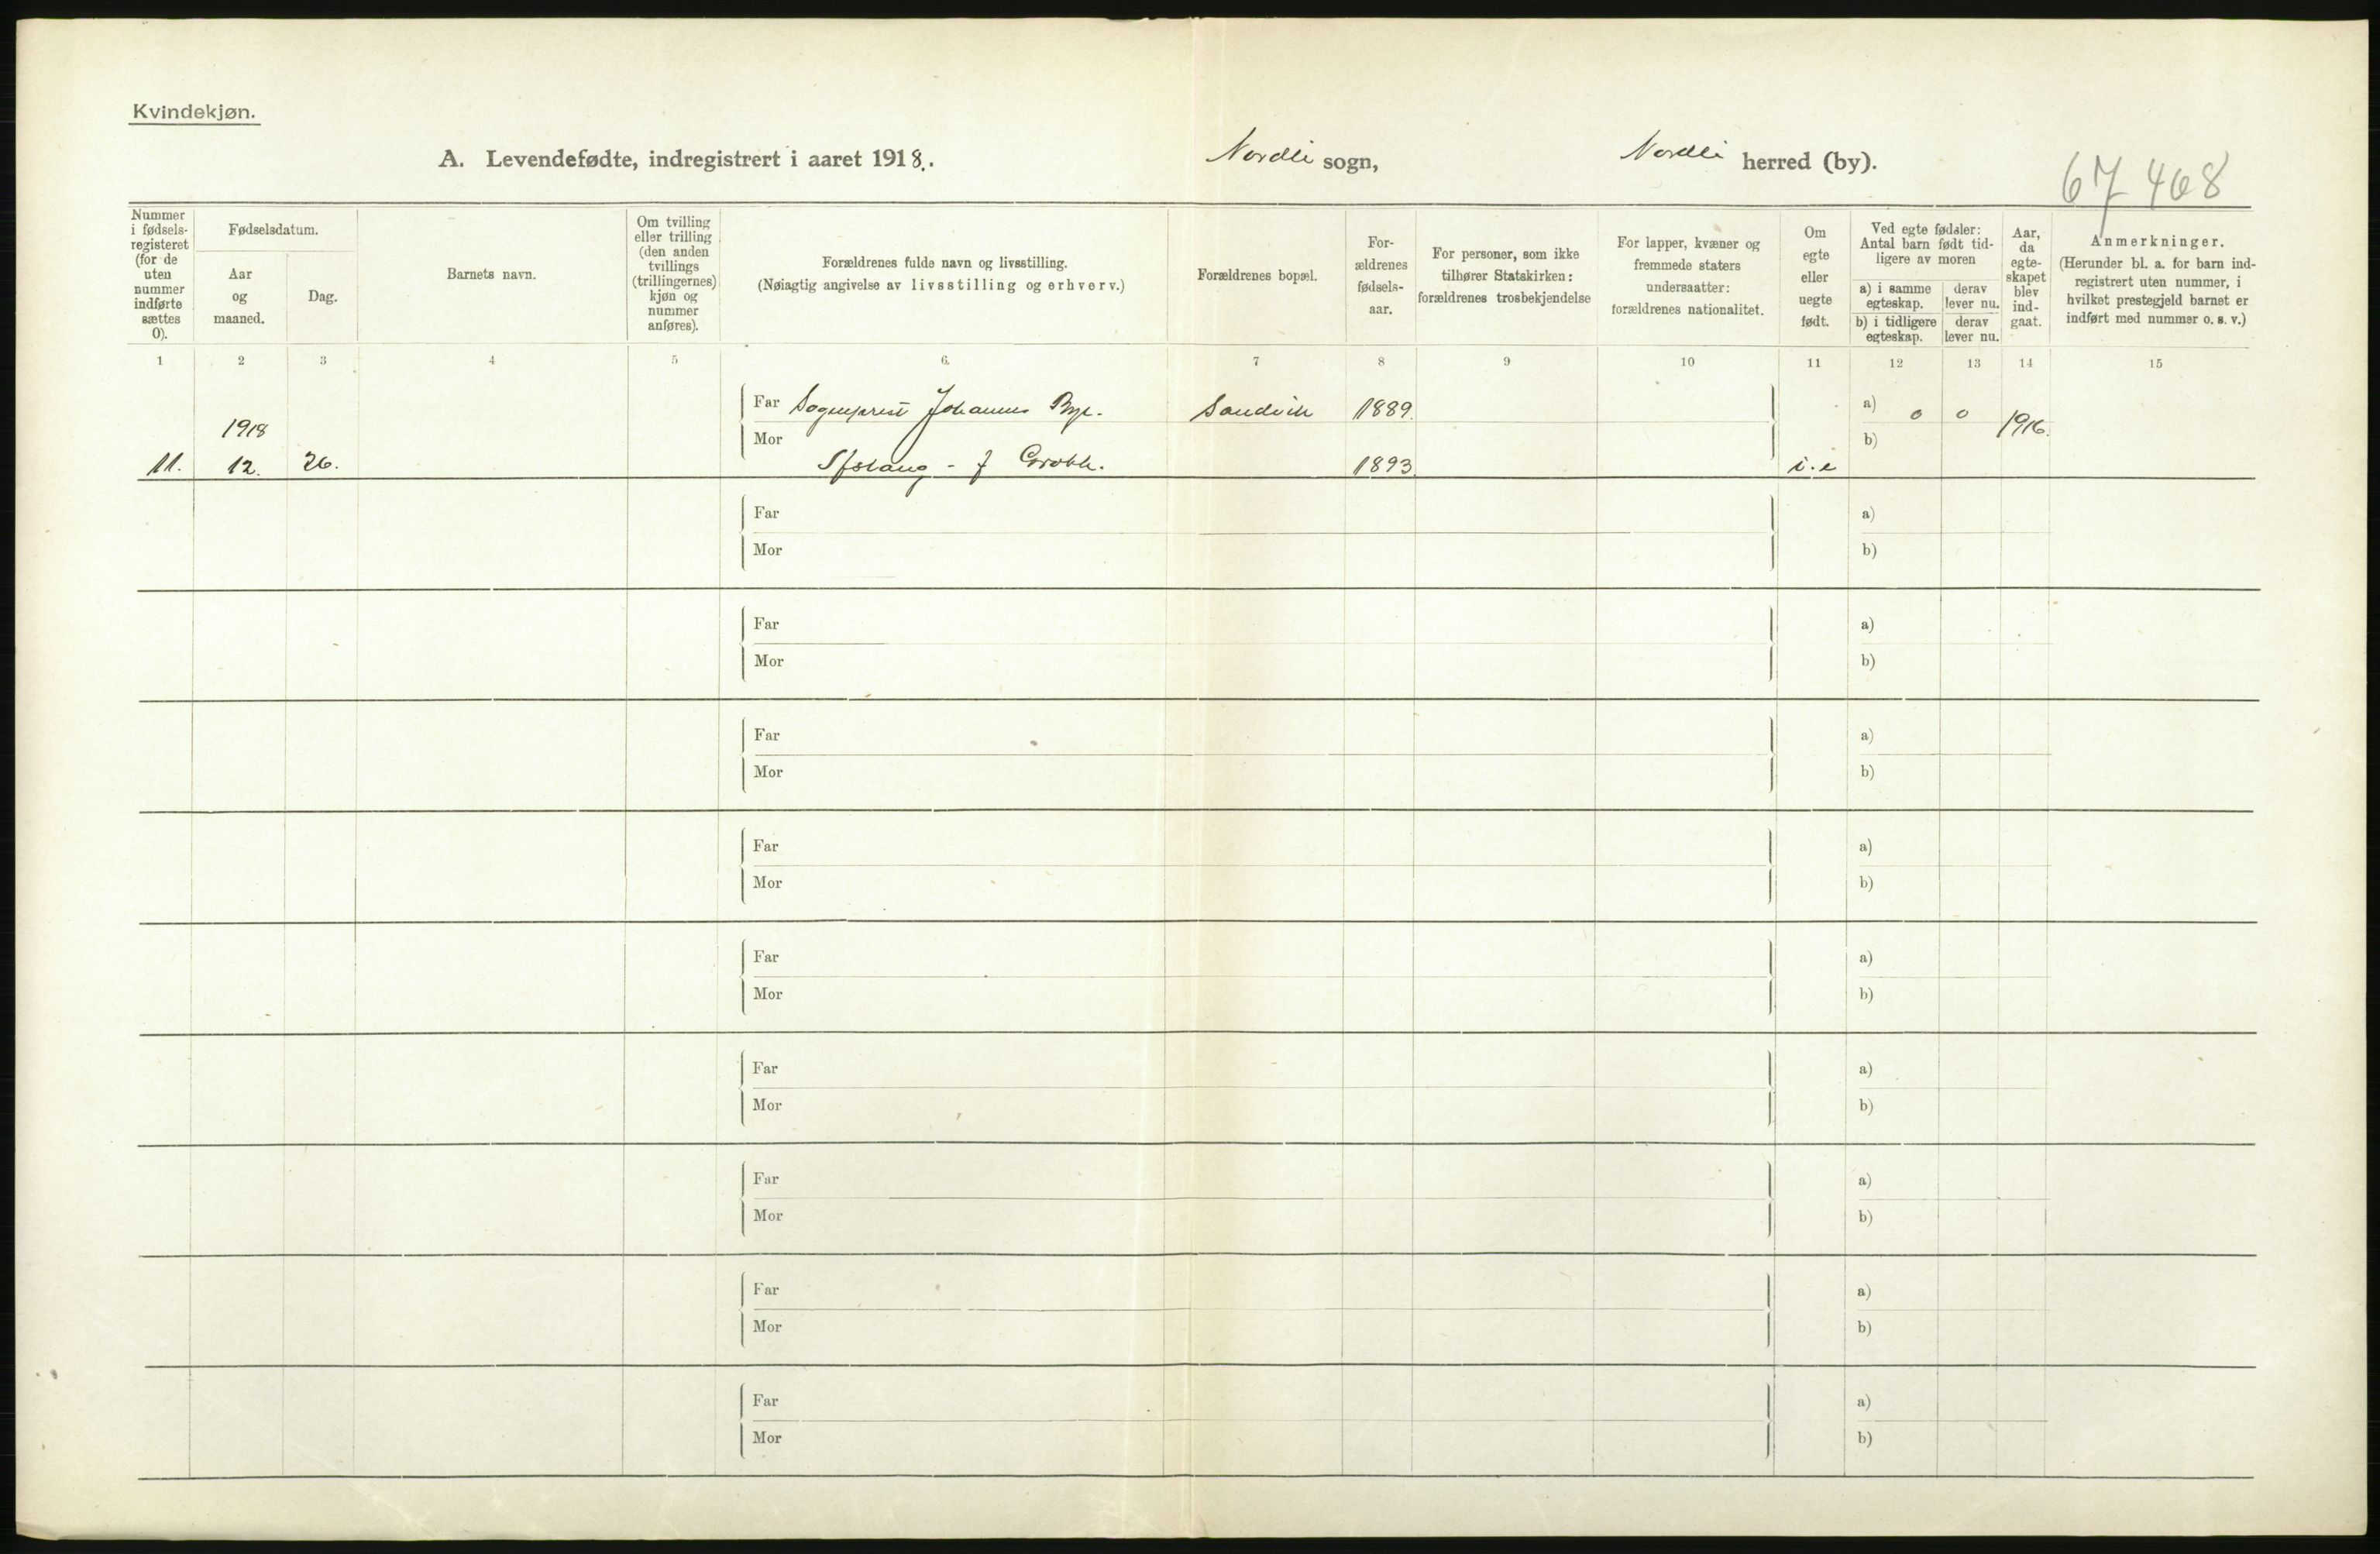 Kvindekjøn.
A. Levendefødte, indregistrert i aaret 1918.
Nordli sogn,
Nordli herred (by).
67 468
Nummer
i fødsels-
registeret
(for de
uten
nummer
indførte
sættes
0).
Fødselsdatum.
Aar
og
maaned.
Dag.
Barnets navn.
Om tvilling
eller trilling
(den anden
tvillings
(trillingernes)
kjøn og
nummer
anføres).
Forældrenes fulde navn og livsstilling.
(Nøiagtig angivelse av livsstilling og erhverv.)
Forældrenes bopæl.
For-
ældrenes
fødsels-
aar.
For personer, som ikke
tilhører Statskirken:
forældrenes trosbekjendelse
For lapper, kvæner og
fremmede staters
undersaatter:
forældrenes nationalitet.
Om
egte
eller
uegte
født.
Ved egte fødsler:
Antal barn født tid-
ligere av moren
a) i samme
egteskap.
derav
lever nu.
b) i tidligere
egteskap.
derav
lever nu.
Aar,
da
egte-
skapet
blev
ind-
gaat.
Anmerkninger.
(Herunder bl. a. for barn ind-
registrert uten nummer, i
hvilket prestegjeld barnet er
indført med nummer o. s. v.)
1 2 3 4 5 6. 7 8 9 10 11 12 13 14 15
Far Sogneprest Johannes Bye. Sandvik 1889. a) 0 0
1918 1916.
Mor b)
11. 12. 26. 1893. i. e
Far a)
Mor b)
Far a)
Mor b)
Far a)
Mor b)
Far a)
Mor b)
Far a)
Mor b)
Far a)
Mor b)
Far a)
Mor b)
Far a)
Mor b)
Far a)
Mor b)